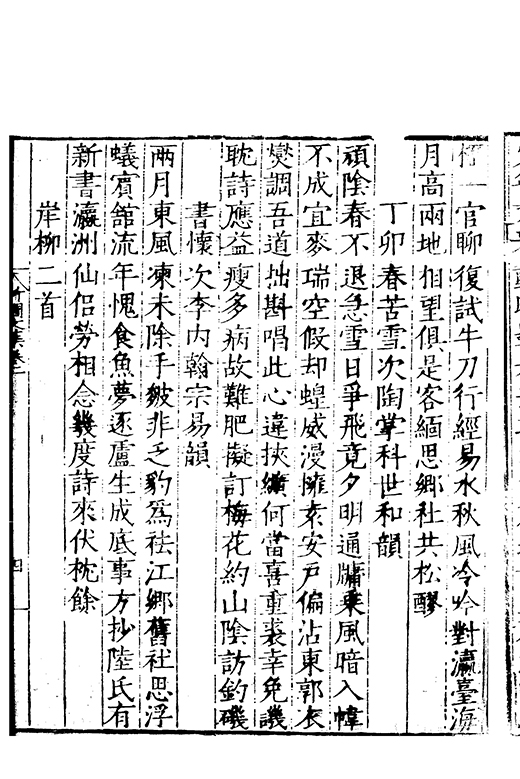 一官聊復試牛刀行經易水秋風冷吟對瀛臺海
月高兩地相望俱是客緬思鄉社共松醪
丁卯春苦雪次陶掌科世和韻
頑陰春不退急雪日爭飛竟夕明通牖乘風暗入幃
不成宜麥瑞空假却蝗威漫擁袁安戶偏沾東郭衣
爕調吾道拙斟唱此心違挾纊何當喜重裘幸免譏
耽詩應益瘦多病故難肥擬訂梅花約山陰訪釣磯
書懷次李内翰宗易韻
兩月東風凍未除手皴非乏豹爲袪江鄉舊社思浮
蟻賓館流年愧食魚夢逐盧生成底事方抄陸氏有
新書瀛洲仙侶勞相念幾度詩來伏枕餘
岸柳二首
四